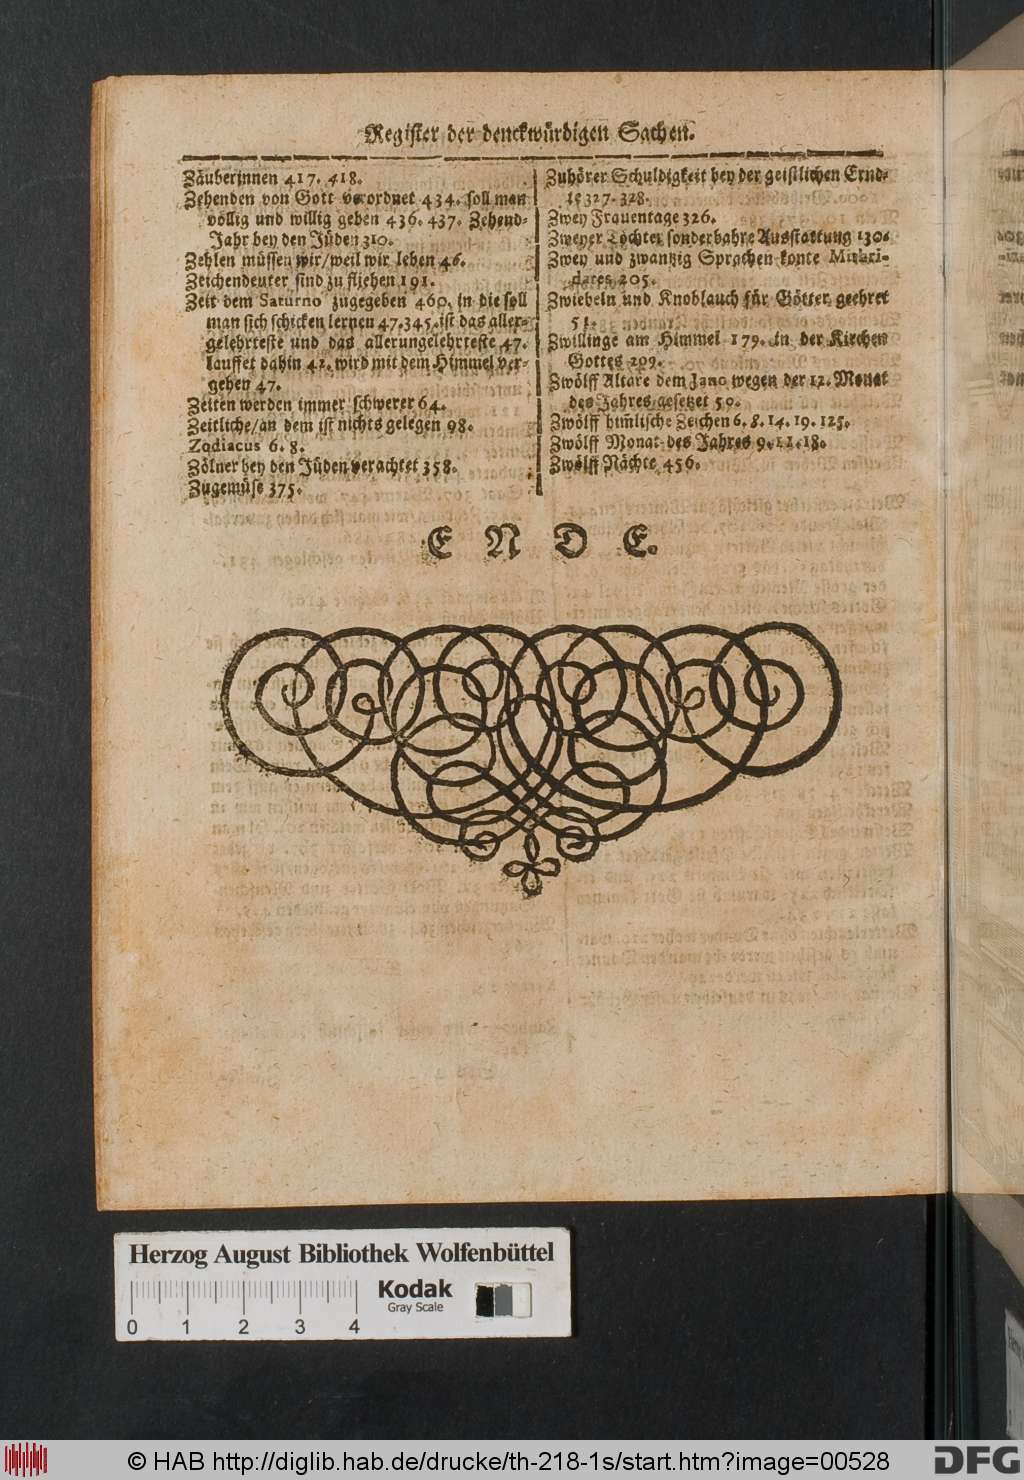 Register der denckwürdigen Sachen.
Zäuberinnen 417. 418.
Zehenden von Gott verordnet 434. soll man
völlig und willig geben 436. 437. Zehend-
Jahr bey den Jüden 310.
Zehlen müssen wir/weil wir leben 46.
Zeichendeuter sind zu fliehen 191.
Zeit dem Saturno zugegeben 460. in die soll
man sich schicken lernen 47.345. ist das aller-
gelehrteste und das allerungelehrteste 47.
lauffet dahin 42. wird mit dem Himmel ver-
gehen 47.
Zeiten werden immer schwerer 64.
Zeitliche/an dem ist nichts gelegen 98.
Zodiacus 6. 8.
Zölner bey den Jüden verachtet 358.
Zugemüse 375.
Zuhörer Schuldigkeit bey der geistlichen Ernd-
te 327. 328.
Zwey Frauentage 326.
Zweyer Töchter sonderbahre Ausstattung 130.
Zwey und zwantzig Sprachen konte Mithri-
dates 205.
Zwiebeln und Knoblauch für Götter geehret
51.
Zwillinge am Himmel 179. in der Kirchen
Gottes 209.
Zwölff Altare dem Jano wegen der 12. Monat
des Jahres gesetzet 50.
Zwölff him̃lische Zeichen 6. 8. 14. 19. 125.
Zwölff Monat des Jahres 9. 12. 18.
Zwölff Nächte 456.
E N D E.
Herzog August Bibliothek Wolfenbüttel
Kodak
Gray Scale
0 1 2 3 4
© HAB http://diglib.hab.de/drucke/th-218-1s/start.htm?image=00528
DFG